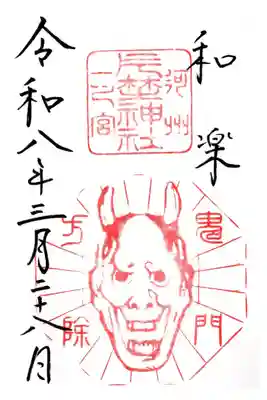 和楽
河州
片埜神社
一ノ宮
鬼門
方除
令和八年三月二十八日